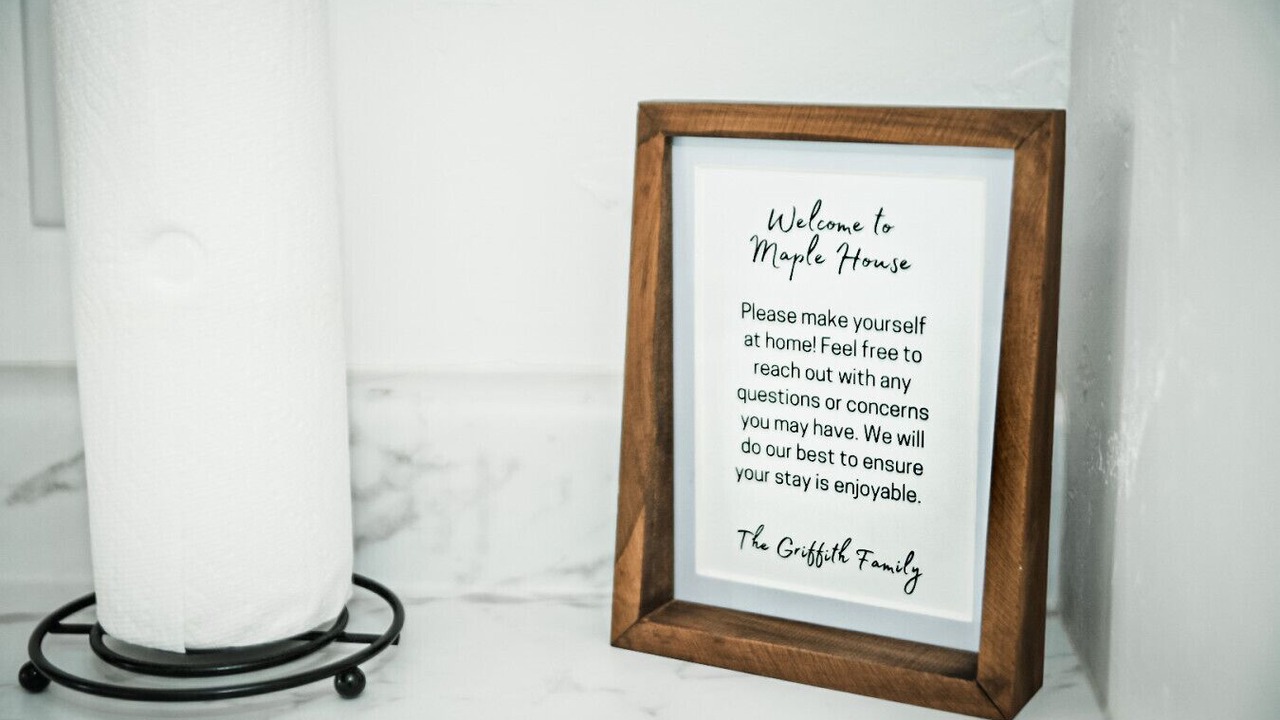 Welcome to
Maple House
Please make yourself
at home! Feel free to
reach out with any
questions or concerns
you may have. We will
do our best to ensure
your stay is enjoyable.
The Griffith Family